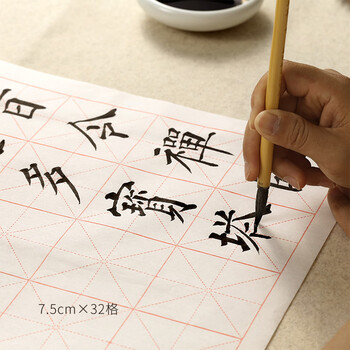 今禪
多寶塔
7.5cm×32格